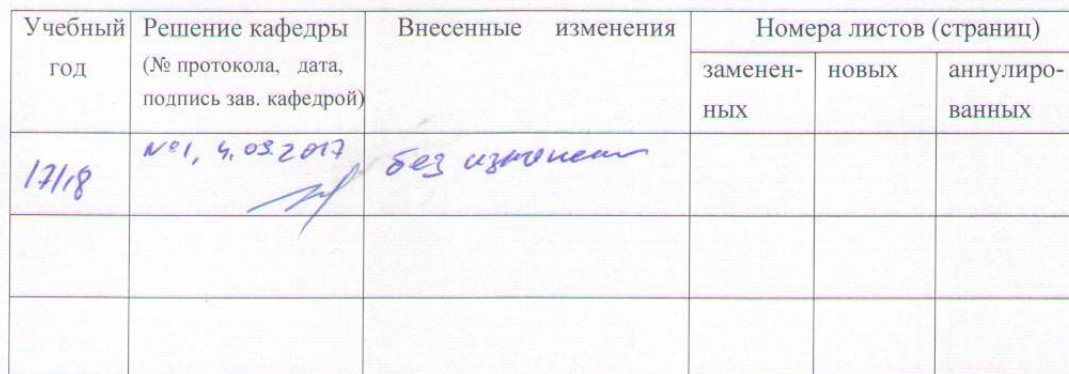 Учебный год
Решение кафедры
(№ протокола, дата,
подпись зав. кафедрой)
Внесенные изменения
Номера листов (страниц)
заменен-
ных
новых
аннулиро-
ванных
17/18
№1, 4.09.2017
без изменений